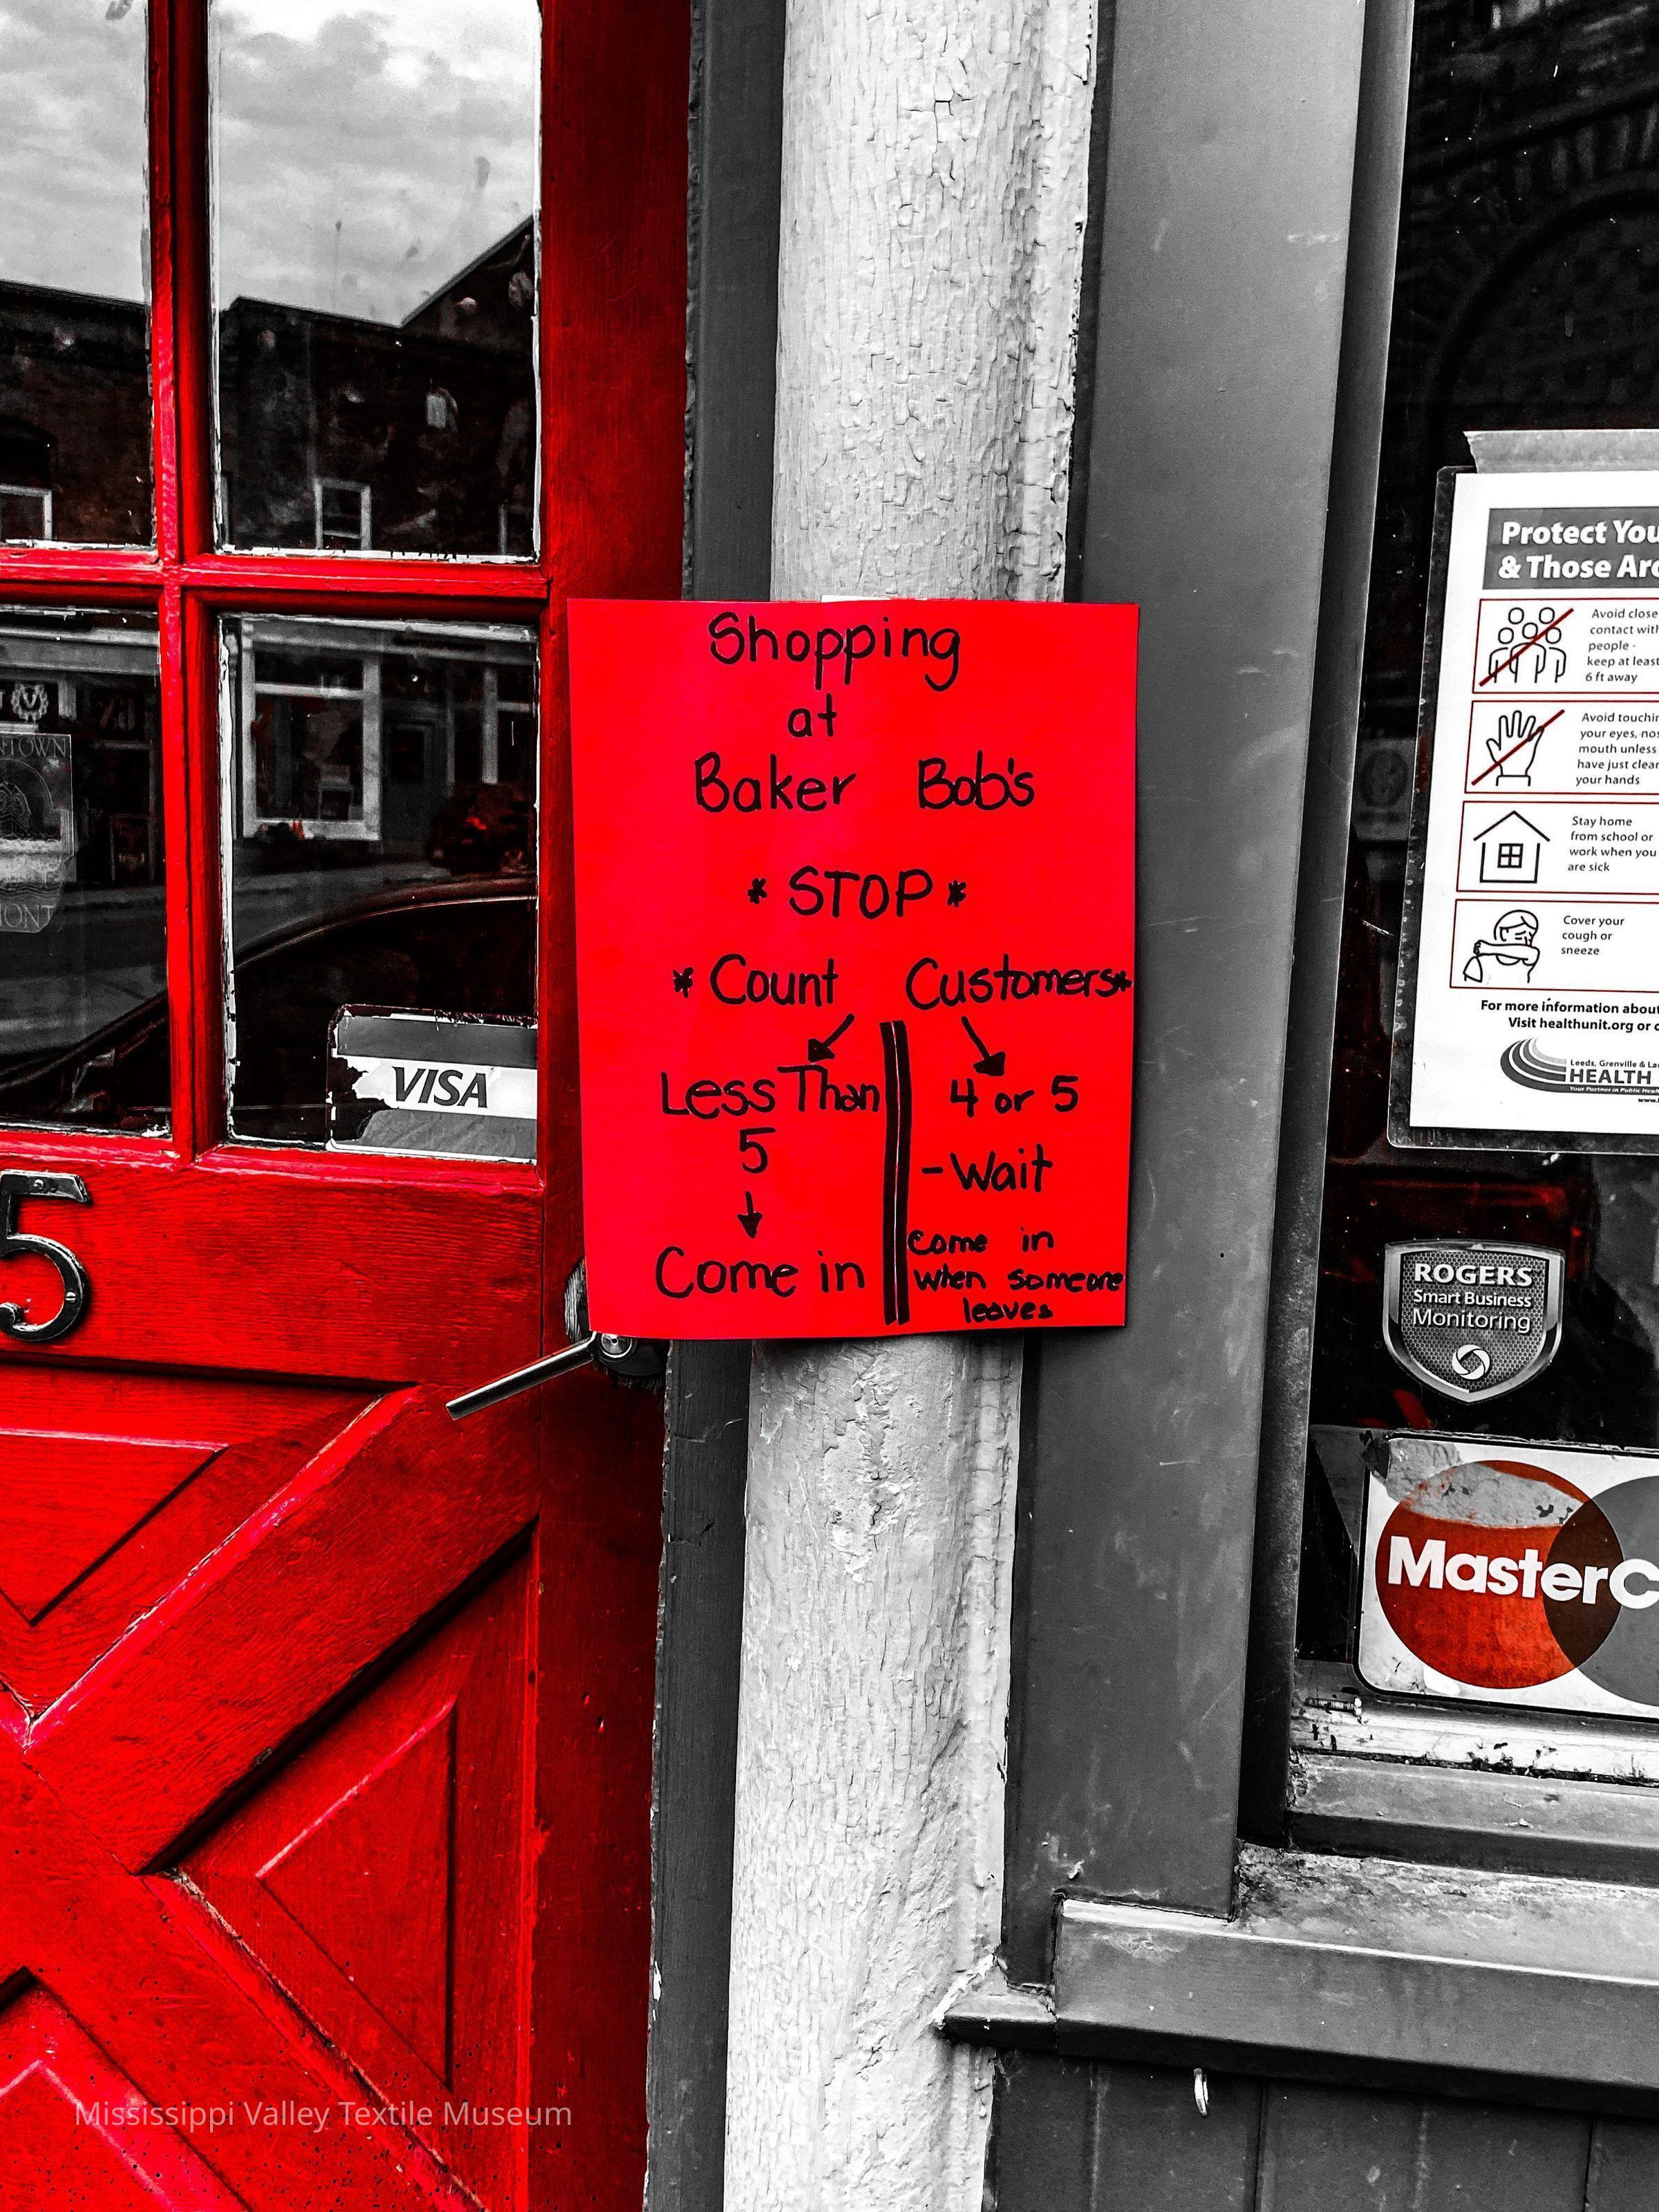 Shopping
at
Baker Bob's
* STOP *
* Count Customers *
Less Than
5
Come in
4 or 5
- Wait
Come in
when someone
leaves
VISA
5
NTOWN
MONT
Protect You
& Those Aro
Avoid close
contact with
people -
keep at least
6 ft away
Avoid touchin
your eyes, nos
mouth unless
have just clean
your hands
Stay home
from school or
work when you
are sick
Cover your
cough or
sneeze
For more information about
Visit healthunit.org or c
Leeds, Grenville & La
HEALTH
ROGERS
Smart Business
Monitoring
MasterC
Mississippi Valley Textile Museum